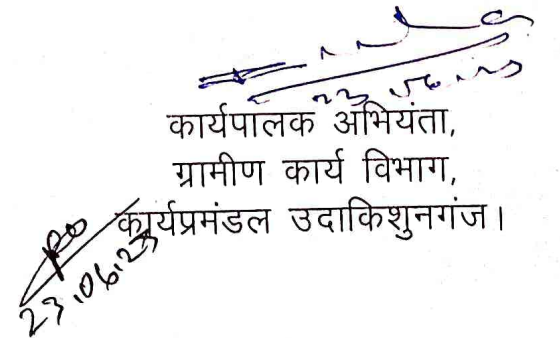 23.06.23
कार्यपालक अभियंता,
ग्रामीण कार्य विभाग,
कार्यप्रमंडल उदाकिशुनगंज।
23.06.23